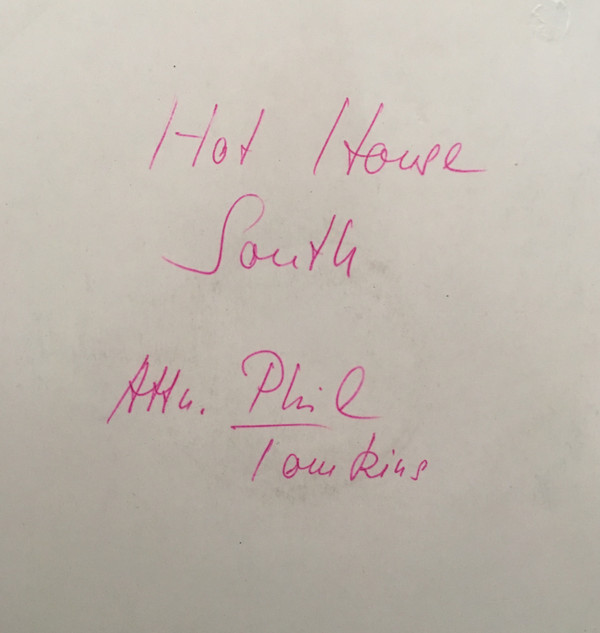 Hot House
South
Attn. Phil
Tomkins